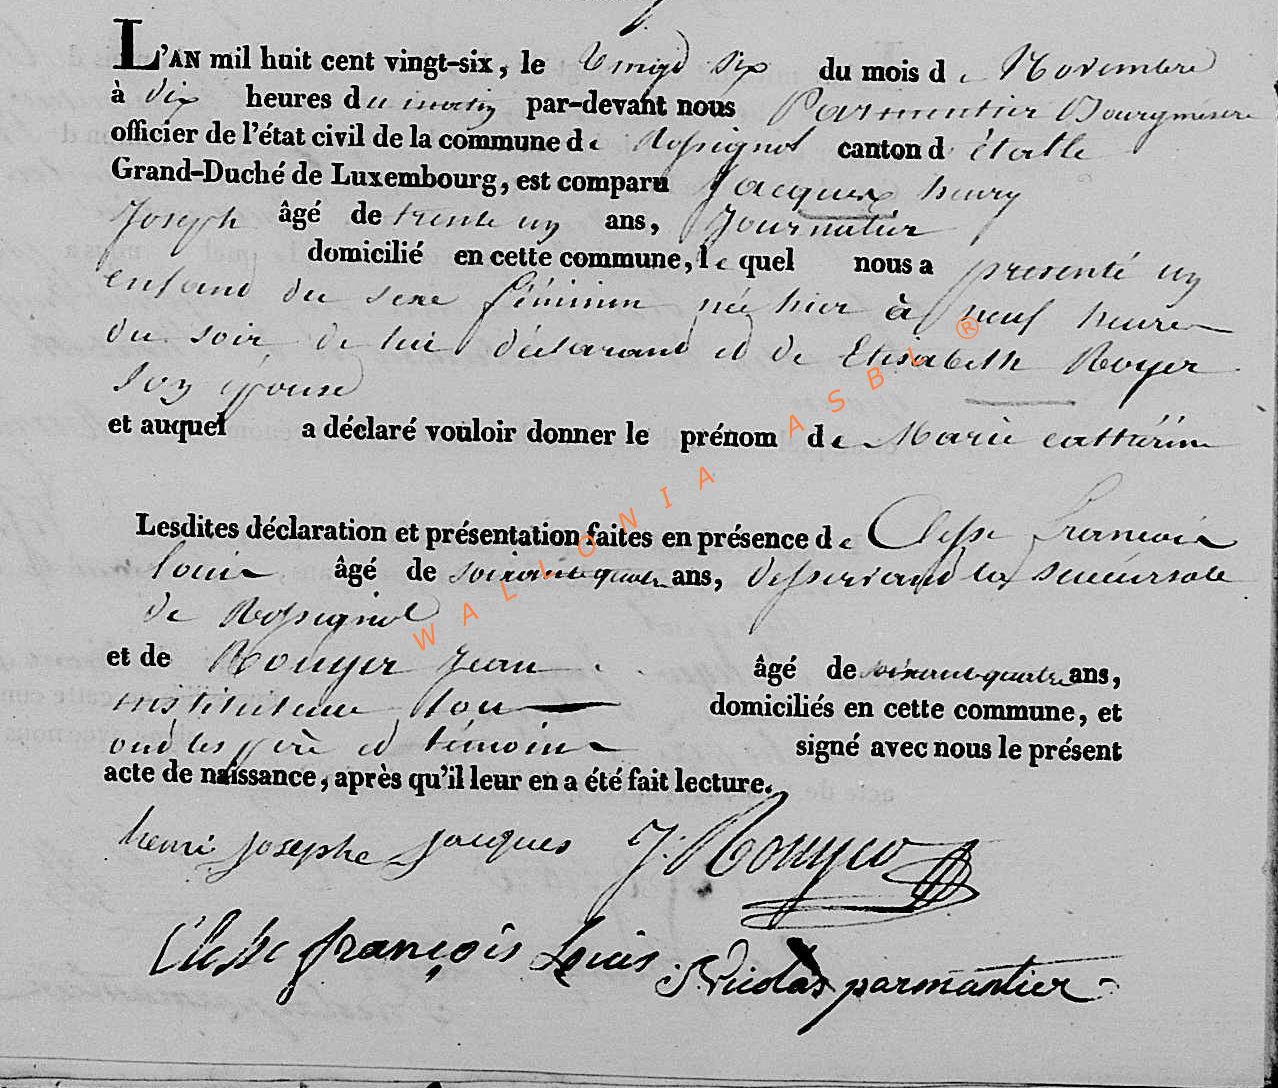 L'AN mil huit cent vingt-six, le Vingt Six du mois de Novembre
à dix heures du matin par-devant nous Parmentier Bourgmestre
officier de l'état civil de la commune de Rossignol canton d'étalle
Grand-Duché de Luxembourg, est comparu Jacques henry
Joseph âgé de trente un ans, Journalier
domicilié en cette commune, lequel nous a presenté un
enfant du sexe féminin née hier à neuf heures
du soir, de lui déclarant et de Elisabeth Rouyer
son épouse
et auquel a déclaré vouloir donner le prénom de Marie cattérine
Lesdites déclaration et présentation faites en présence de Clesse francois
louis âgé de soixante quatre ans, desservant la succursale
de Rossignol
et de Rouyer jean âgé de soixante quatre ans,
instituteur tous domiciliés en cette commune, et
ont les père et témoins signé avec nous le présent
acte de naissance, après qu'il leur en a été fait lecture.
henri josephe jacques J. Rouyer
Clesse françois Louis Nicolas parmantier
WALLONIA ASBL ®